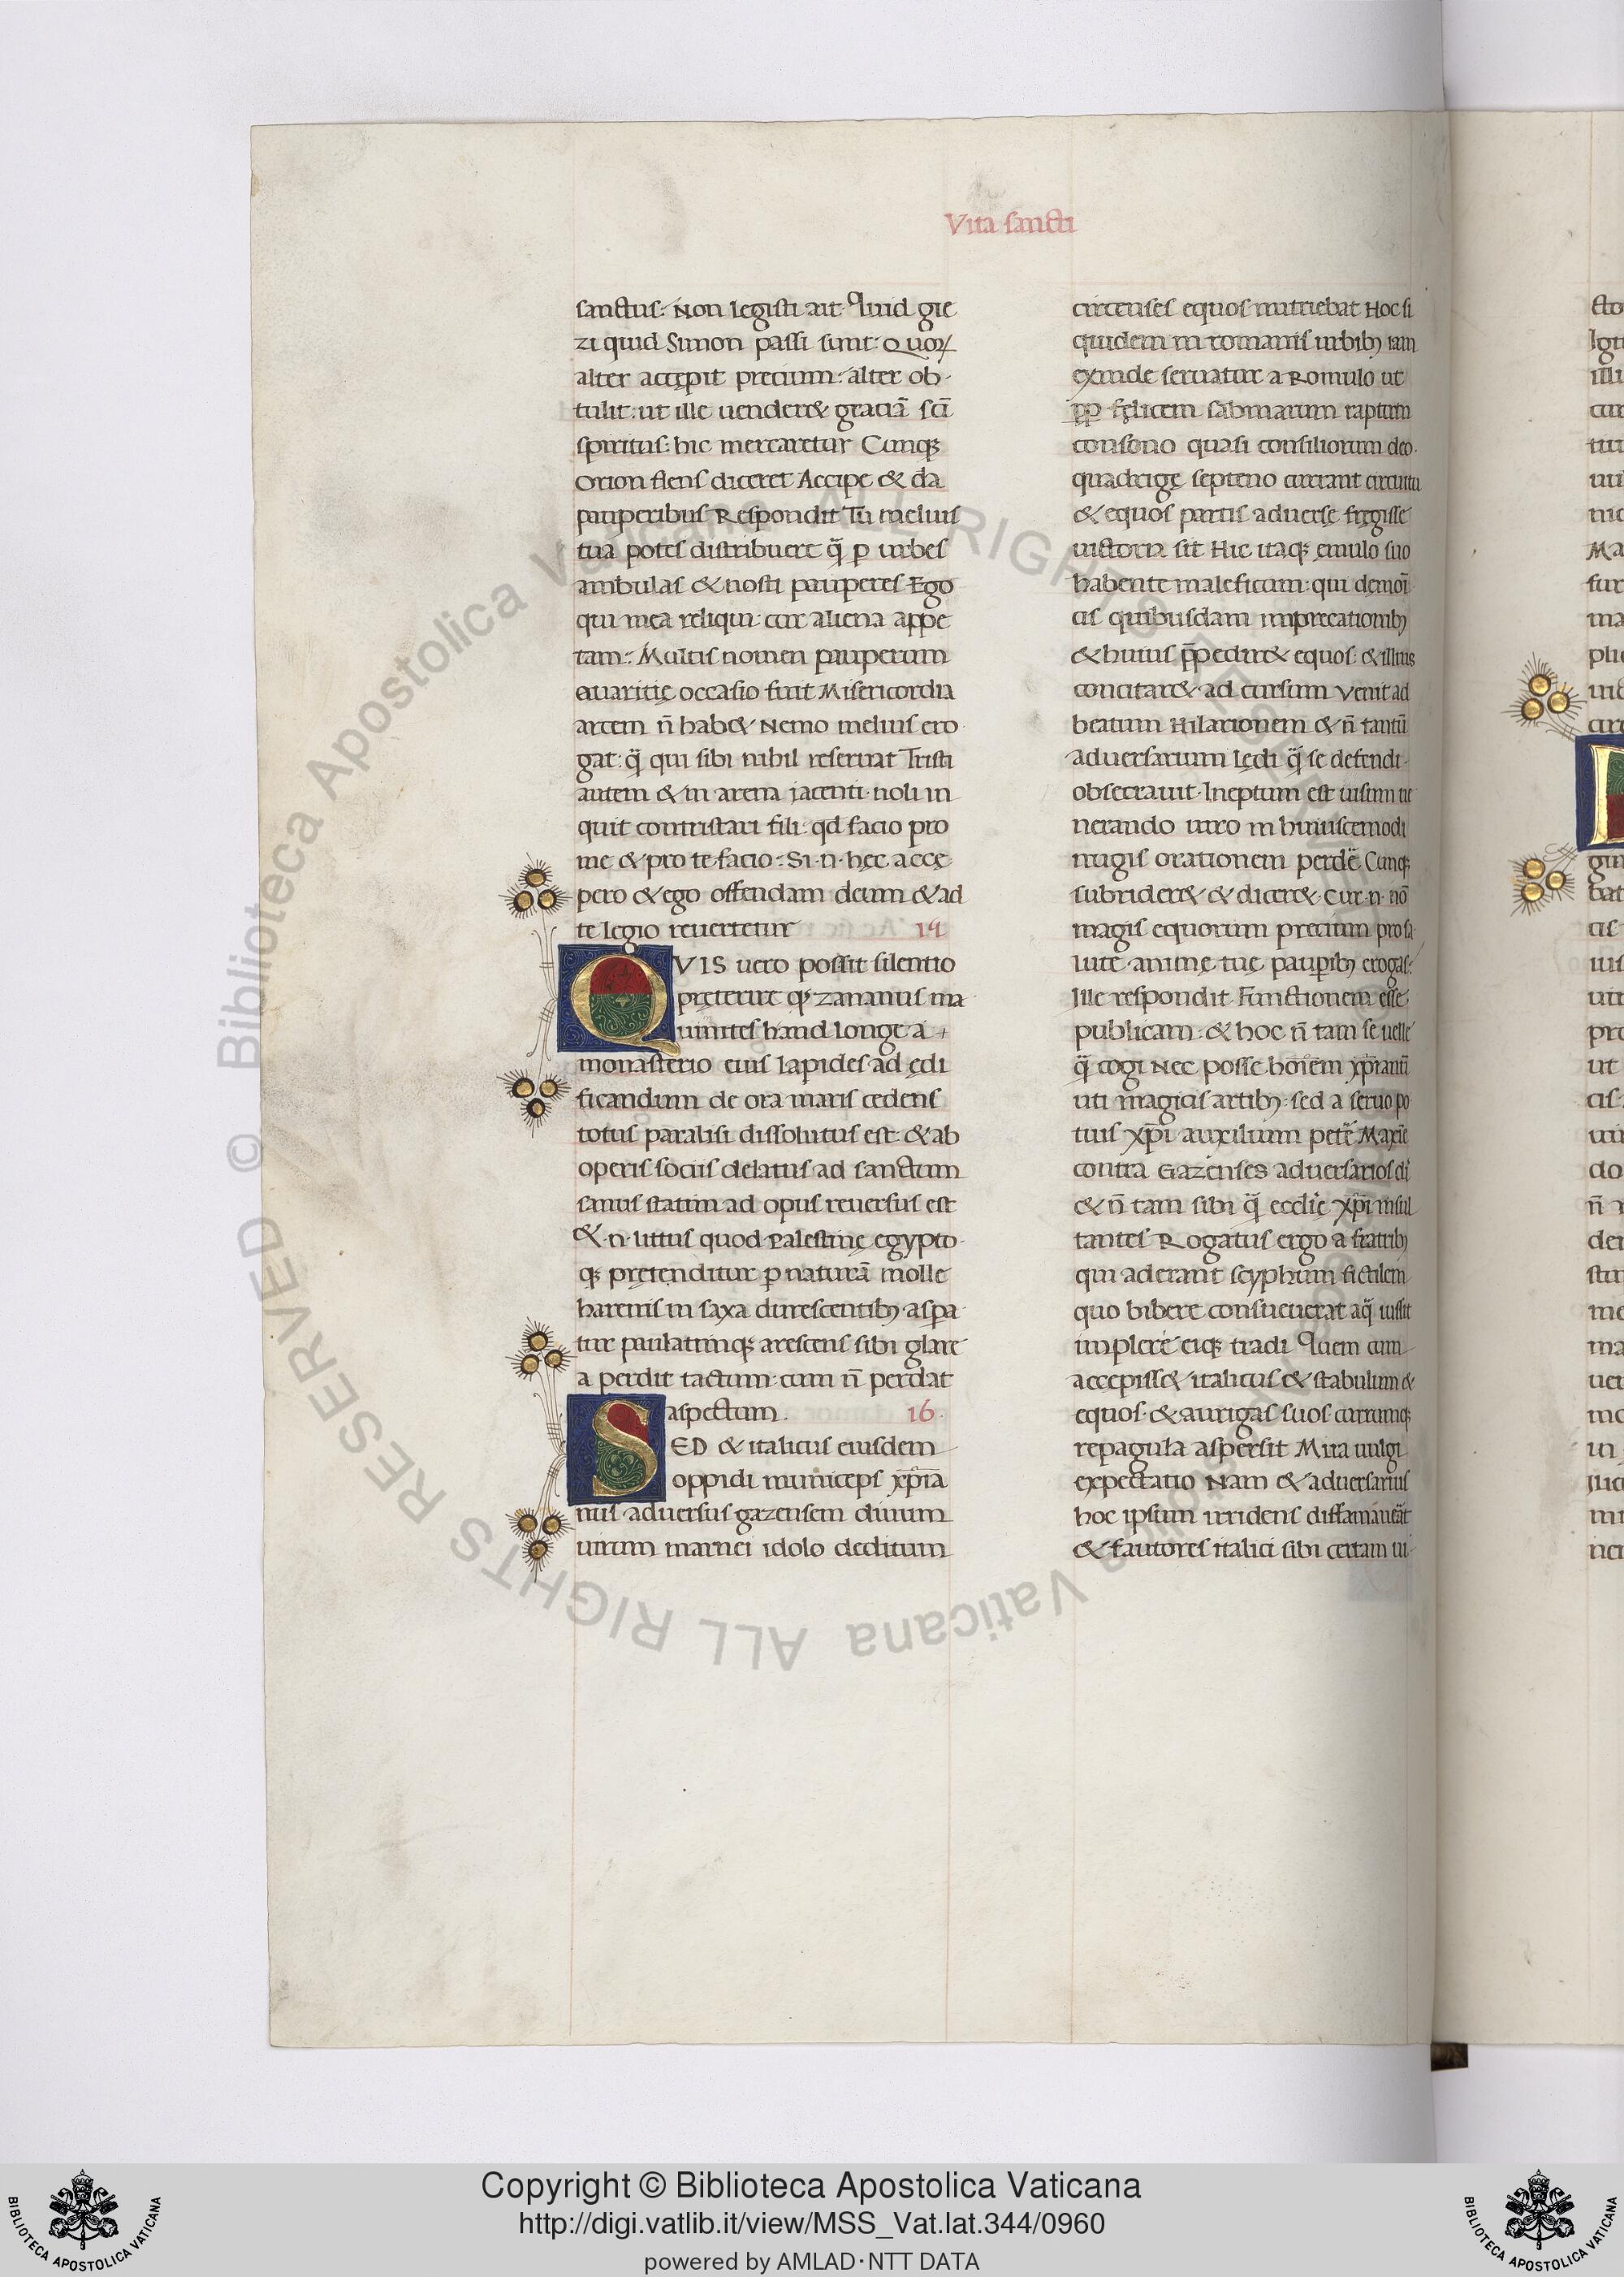 Vita sancti
sanctus: Non legisti ait. Quid gie
zi quid Simon passi sunt: Quoꝝ
alter accępit precium: alter ob-
tulit: ut ille uender& gratiā scī
spiritus: hic mercaretur Cunqꝫ
Orion flens diceret Accipe & da
pauperibus Respondit Tu melius
tua potes distribuere q̄ ꝑ urbes
ambulas & nosti pauperes Ego
qui mea reliqui: cur aliena appe
tam: Multis nomen pauperum
auaritię occasio fuit Misericordia
artem n̄ hab& Nemo melius ero
gat: q̄ qui sibi nihil reseruat Tristi
autem & in arena iacenti. noli in
quit contristari fili. qd facio pro
me & pro te facio: Si .n. hęc accę
pero & ego offendam deum & ad
te legio reuertetur 15
QVIS uero possit silentio
pręterire qꝫ zananus ma
iumites haud longe a
monasterio eius lapides ad ędi
ficandum de ora maris cedens
totus paralisi dissolutus est: & ab
operis sociis delatus ad sanctum
sanus statim ad opus reuersus est
& .n. littus quod Palestinę egypto
qꝫ pręţenditur ꝑ naturā molle
harenis in saxa durescentibꝫ aspa
tur paulatimqꝫ arescens sibi glare
a perdit tactum: cum n̄ perdat
aspectum. 16.
SED & italicus eiusdem
oppidi municeps xp̄ia
nus aduersus gazensem diuum
uirum marnei idolo deditum
circenses equos nutriebat Hoc si
quidem in romanis urbibꝫ iam
exinde seruatur a Romulo ut
ꝓp fęlicem sabinarum raptum
consono quasi consiliorum deo.
quadrigę septeno currant circuitu
& equos partis aduersę fręgisse
uictoria sit Hic itaqꝫ ęmulo suo
habente maleficum: qui dęmoī
cis quibusdam imprecationibꝫ
& huius p̄pedir& equos: & illius
concitar& ad cursum Venit ad
beatum Hilarionem & n̄ tantū
aduersarium lędi q̄ se defendi
obsecrauit. Ineptum est uisum ue
nerando uiro in huiuscemodi
nugis orationem perdē. Cunqꝫ
subrider& & dicer&. Cur .n. nō
magis equorum precium pro sa
lute animę tuę pauꝑibꝫ erogas:
Ille respondit Functionem esse
publicam: & hoc n̄ tam se uelle
q̄ cogi Nec posse hoīem xp̄ianū
uti magicis artibꝫ: sed a seruo po
tius xp̄i auxilium petē Maxīe
contra Gazenses aduersarios dī
& n̄ tam sibi q̄ ecclīę xp̄i insul
tantes Rogatus ergo a fratribꝫ
qui aderant scyphum fictilem
quo bibere consueuerat aq̄ iussit
implere eiqꝫ tradi Quem cum
accepiss& italicus & stabulum &
equos. & aurigas suos currumqꝫ
repagula aspersit Mira uulgi
expectatio Nam & aduersarius
hoc ipsum irridens diffamauēat
& fautores italici sibi certam ui
© Biblioteca Apostolica Vaticana ALL RIGHTS RESERVED
BIBLIOTECA APOSTOLICA VATICANA
Copyright © Biblioteca Apostolica Vaticana
http://digi.vatlib.it/view/MSS_Vat.lat.344/0960
powered by AMLAD·NTT DATA
BIBLIOTECA APOSTOLICA VATICANA